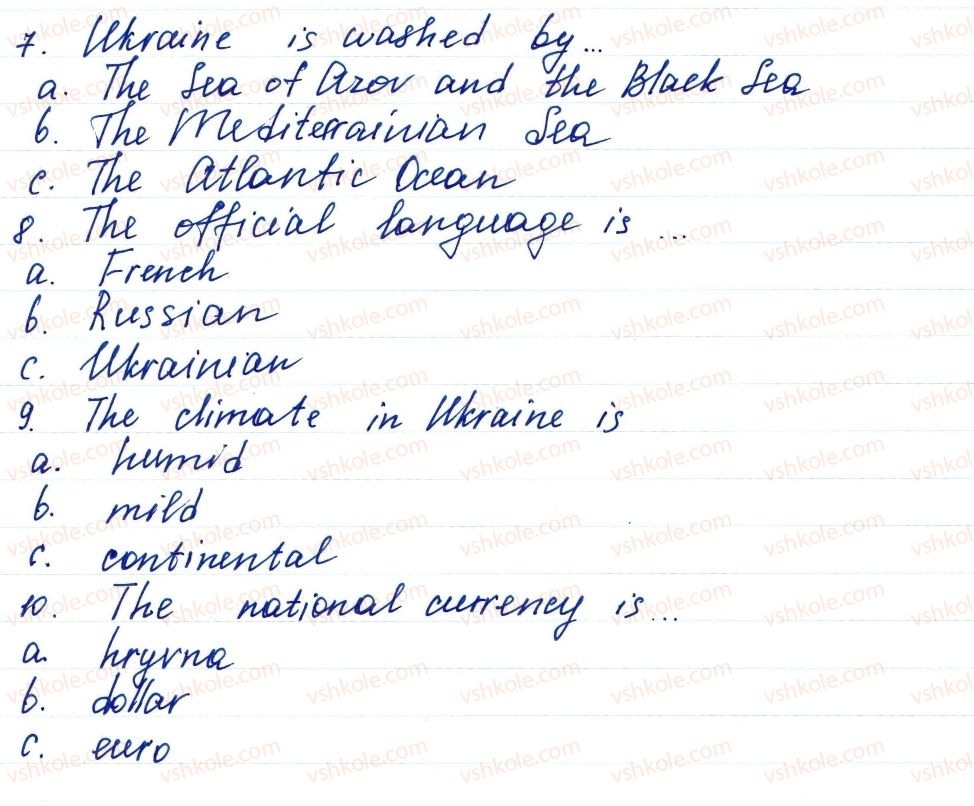 7. Ukraine is washed by...
a. The Sea of Azov and the Black Sea
b. The Mediterrainian Sea
c. The Atlantic Ocean
8. The official language is ...
a. French
b. Russian
c. Ukrainian
9. The climate in Ukraine is
a. humid
b. mild
c. continental
10. The national currency is...
a. hryvna
b. dollar
c. euro